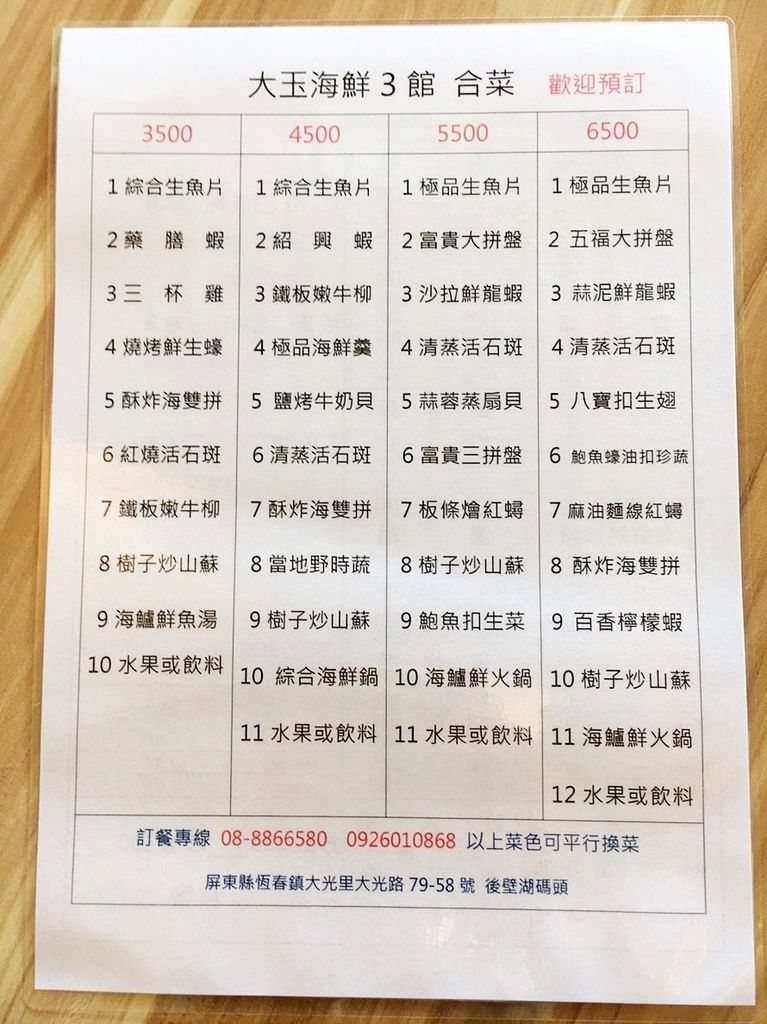 大玉海鮮3館 合菜 歡迎預訂
3500 4500 5500 6500
1 綜合生魚片 1 綜合生魚片 1 極品生魚片 1 極品生魚片
2 藥膳蝦 2 紹興蝦 2 富貴大拼盤 2 五福大拼盤
3 三杯雞 3 鐵板嫩牛柳 3 沙拉鮮龍蝦 3 蒜泥鮮龍蝦
4 燒烤鮮生蠔 4 極品海鮮羹 4 清蒸活石斑 4 清蒸活石斑
5 酥炸海雙拼 5 鹽烤牛奶貝 5 蒜蓉蒸扇貝 5 八寶扣生翅
6 紅燒活石斑 6 清蒸活石斑 6 富貴三拼盤 6 鮑魚蠔油扣珍蔬
7 鐵板嫩牛柳 7 酥炸海雙拼 7 板條燴紅蟳 7 麻油麵線紅蟳
8 樹子炒山蘇 8 當地野時蔬 8 樹子炒山蘇 8 酥炸海雙拼
9 海鱸鮮魚湯 9 樹子炒山蘇 9 鮑魚扣生菜 9 百香檸檬蝦
10 水果或飲料 10 綜合海鮮鍋 10 海鱸鮮火鍋 10 樹子炒山蘇
11 水果或飲料 11 水果或飲料 11 海鱸鮮火鍋
12 水果或飲料
訂餐專線 08-8866580 0926010868 以上菜色可平行換菜
屏東縣恆春鎮大光里大光路 79-58 號 後壁湖碼頭